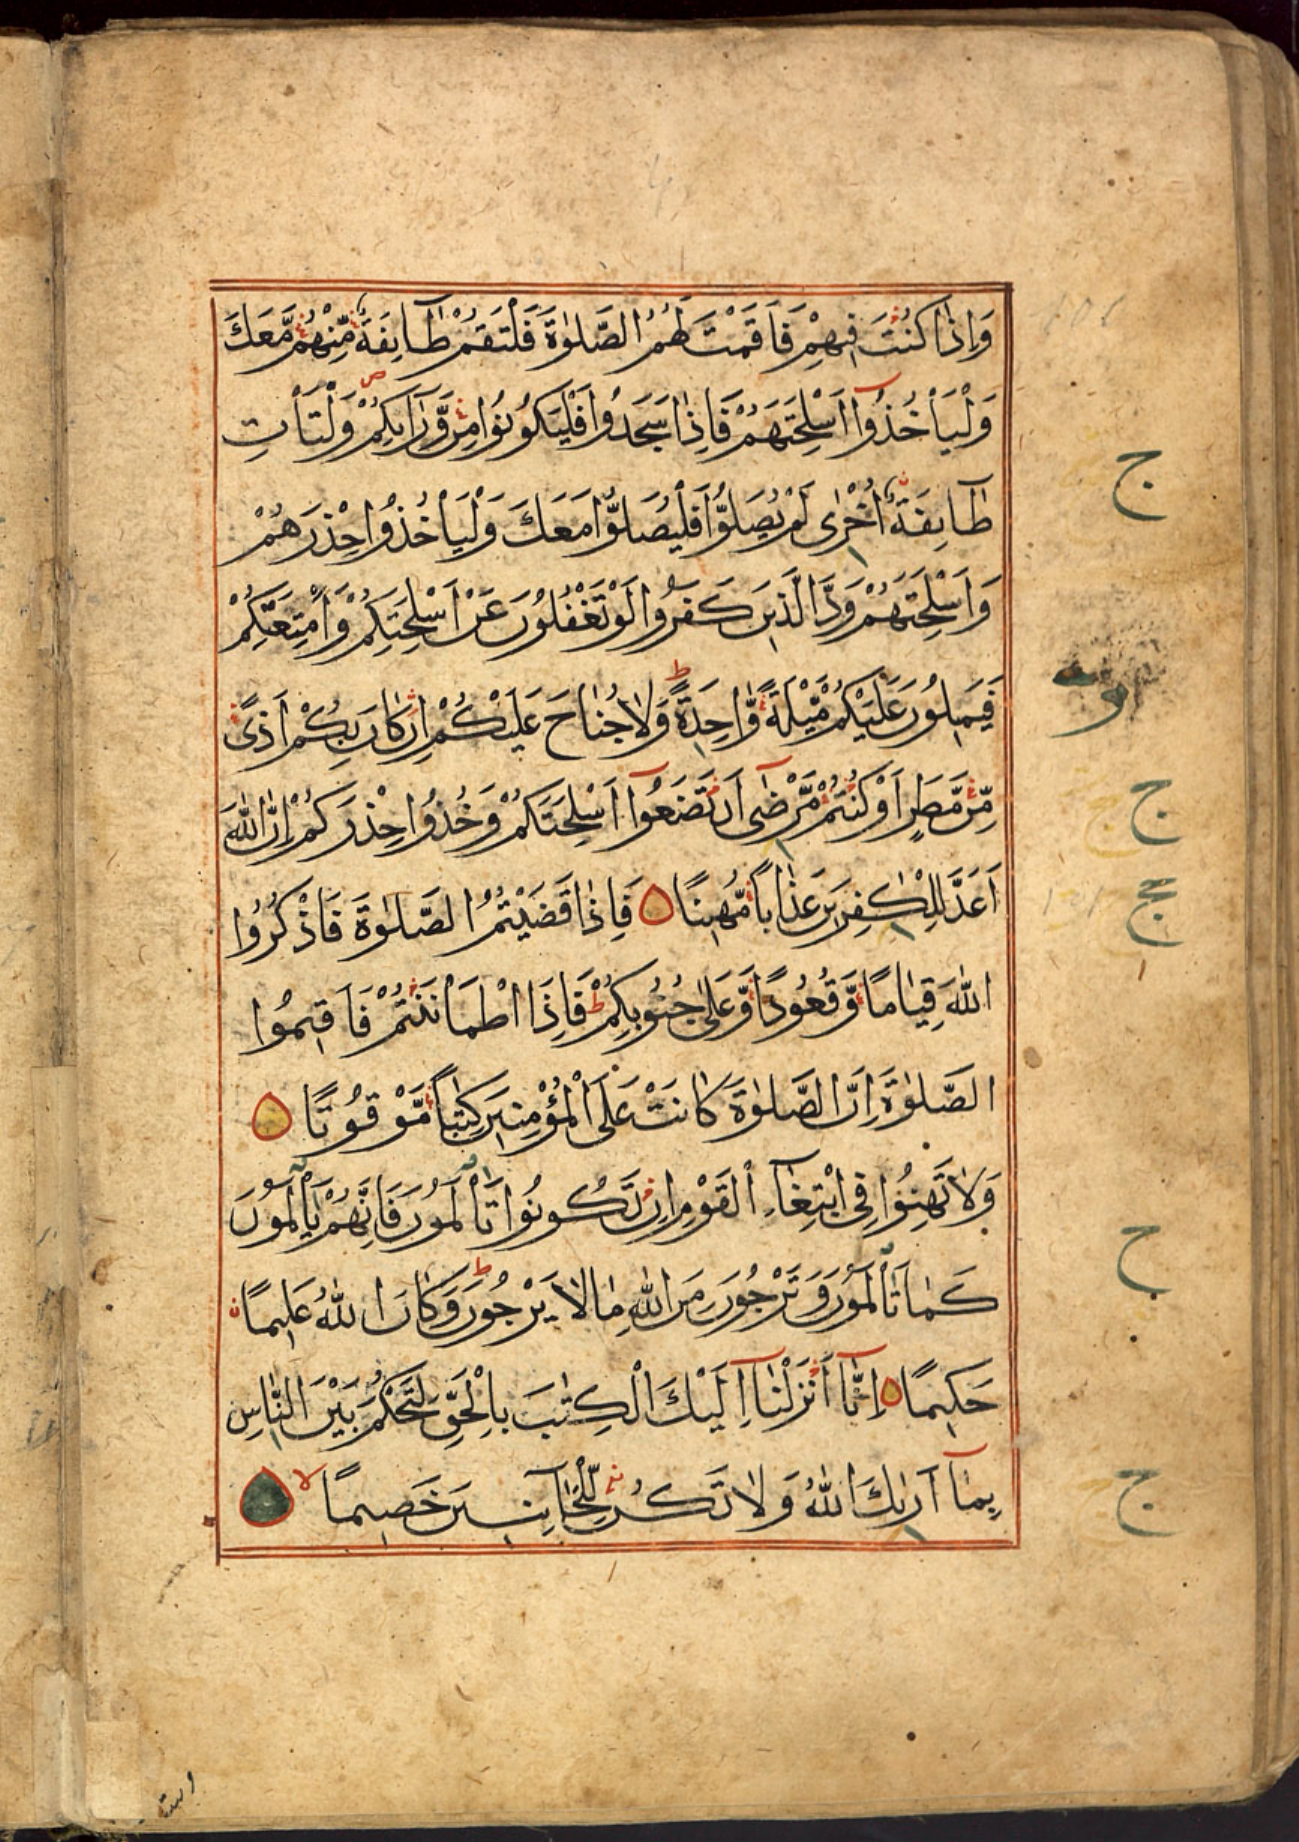 وَإِذَا كُنْتَ فِيهِمْ فَأَقَمْتَ لَهُمُ الصَّلٰوةَ فَلْتَقُمْ طَآئِفَةٌ مِّنْهُمْ مَّعَكَ
وَلْيَأْخُذُوٓا أَسْلِحَتَهُمْ فَإِذَا سَجَدُوا فَلْيَكُونُوا مِنْ وَّرَآئِكُمْ وَلْتَأْتِ
طَآئِفَةٌ أُخْرٰى لَمْ يُصَلُّوا فَلْيُصَلُّوا مَعَكَ وَلْيَأْخُذُوا حِذْرَهُمْ
وَأَسْلِحَتَهُمْ وَدَّ الَّذِينَ كَفَرُوا لَوْ تَغْفُلُونَ عَنْ أَسْلِحَتِكُمْ وَأَمْتِعَتِكُمْ
فَيَمِيلُونَ عَلَيْكُمْ مَّيْلَةً وَّاحِدَةً ط وَلَا جُنَاحَ عَلَيْكُمْ إِنْ كَانَ بِكُمْ أَذًى
مِّنْ مَّطَرٍ أَوْ كُنْتُمْ مَّرْضٰٓى أَنْ تَضَعُوٓا أَسْلِحَتَكُمْ وَخُذُوا حِذْرَكُمْ إِنَّ اللّٰهَ
أَعَدَّ لِلْكٰفِرِينَ عَذَابًا مُّهِينًا فَإِذَا قَضَيْتُمُ الصَّلٰوةَ فَاذْكُرُوا
اللّٰهَ قِيَامًا وَّقُعُودًا وَّعَلٰى جُنُوبِكُمْ ط فَإِذَا اطْمَأْنَنْتُمْ فَأَقِيمُوا
الصَّلٰوةَ إِنَّ الصَّلٰوةَ كَانَتْ عَلَى الْمُؤْمِنِينَ كِتٰبًا مَّوْقُوتًا
وَلَا تَهِنُوا فِي ابْتِغَآءِ الْقَوْمِ إِنْ تَكُونُوا تَأْلَمُونَ فَإِنَّهُمْ يَأْلَمُونَ
كَمَا تَأْلَمُونَ وَتَرْجُونَ مِنَ اللّٰهِ مَا لَا يَرْجُونَ ط وَكَانَ اللّٰهُ عَلِيمًا
حَكِيمًا إِنَّآ أَنْزَلْنَآ إِلَيْكَ الْكِتٰبَ بِالْحَقِّ لِتَحْكُمَ بَيْنَ النَّاسِ
بِمَآ أَرٰىكَ اللّٰهُ وَلَا تَكُنْ لِّلْخَآئِنِينَ خَصِيمًا لا
ج
ج
ج